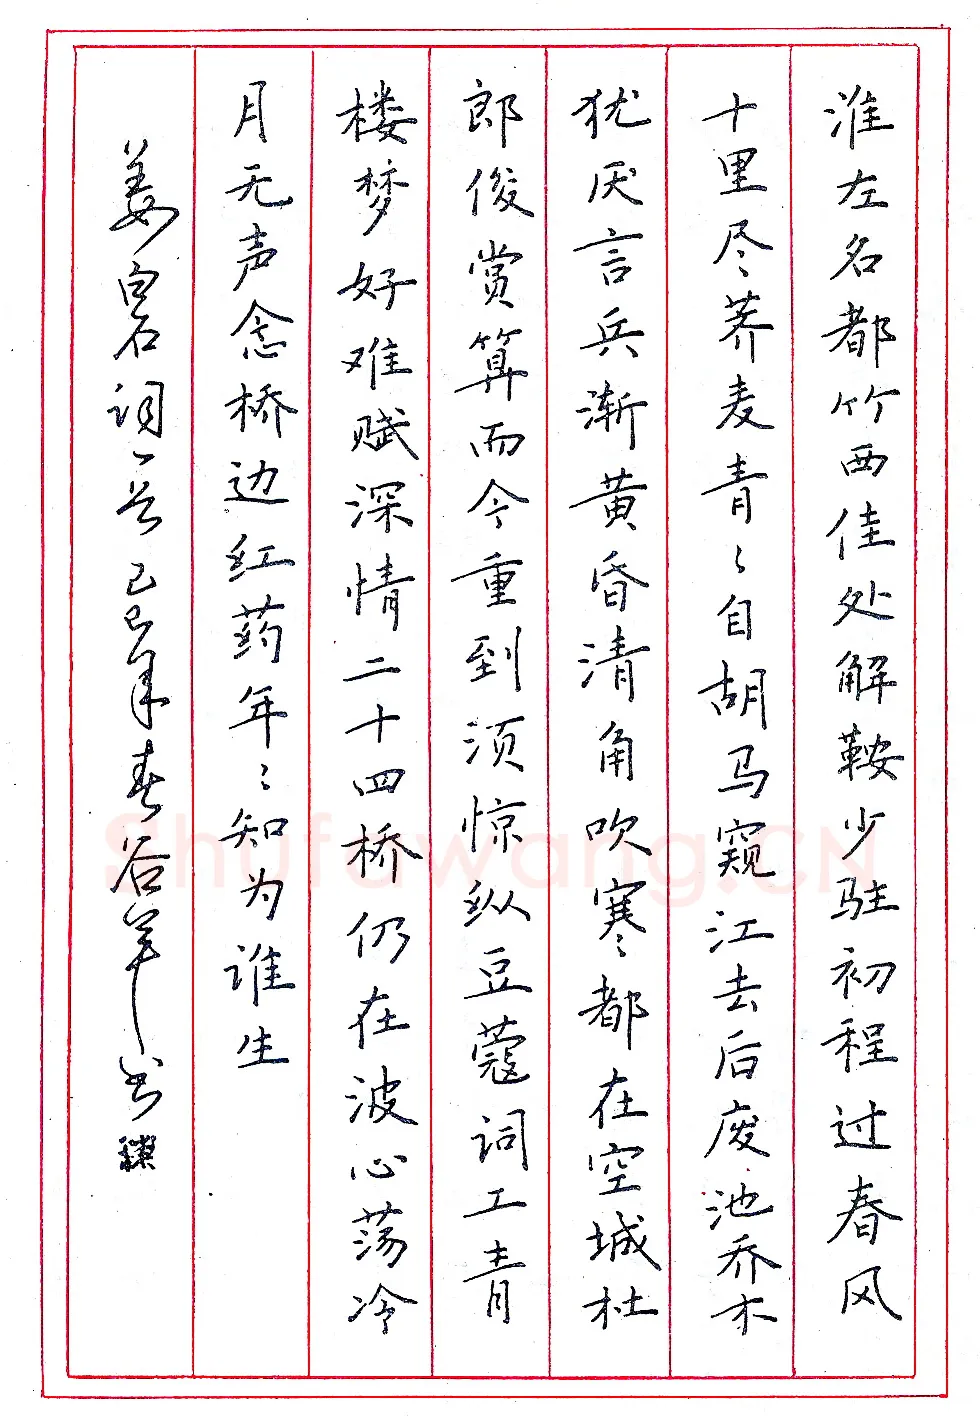 淮左名都竹西佳处解鞍少驻初程过春风
十里尽荠麦青〻自胡马窥江去后废池乔木
犹厌言兵渐黄昏清角吹寒〻都在空城杜
郎俊赏算而今重到须惊纵豆蔻词工青
楼梦好难赋深情二十四桥仍在波心荡冷
月无声念桥边红药年〻知为谁生
姜白石词一首己巳年春谷羊书
Shufawang.CN